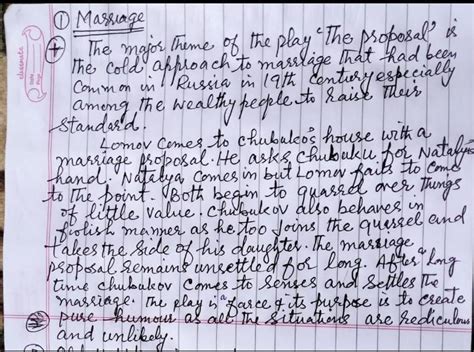 ① Marriage
The major theme of the play "The proposal" is
the cold approach to marriage that had been
common in Russia in 19th century especially
among the wealthy people to raise their
standard.
Lomov comes to chubukov's house with a
marriage proposal. He asks Chubuku for Natalya's
hand. Natalya comes in but Lomov fails to come
to the point. Both begin to quarrel over things
of little value. Chubukov also behaves in
foolish manner as he too joins the quarrel and
takes the side of his daughter. The marriage
proposal remains unsettled for long. After long
time chubukov comes to senses and settles the
marriage. The play is a farce & its purpose is to create
pure humour as all the situations are rediculous
and unlikely.